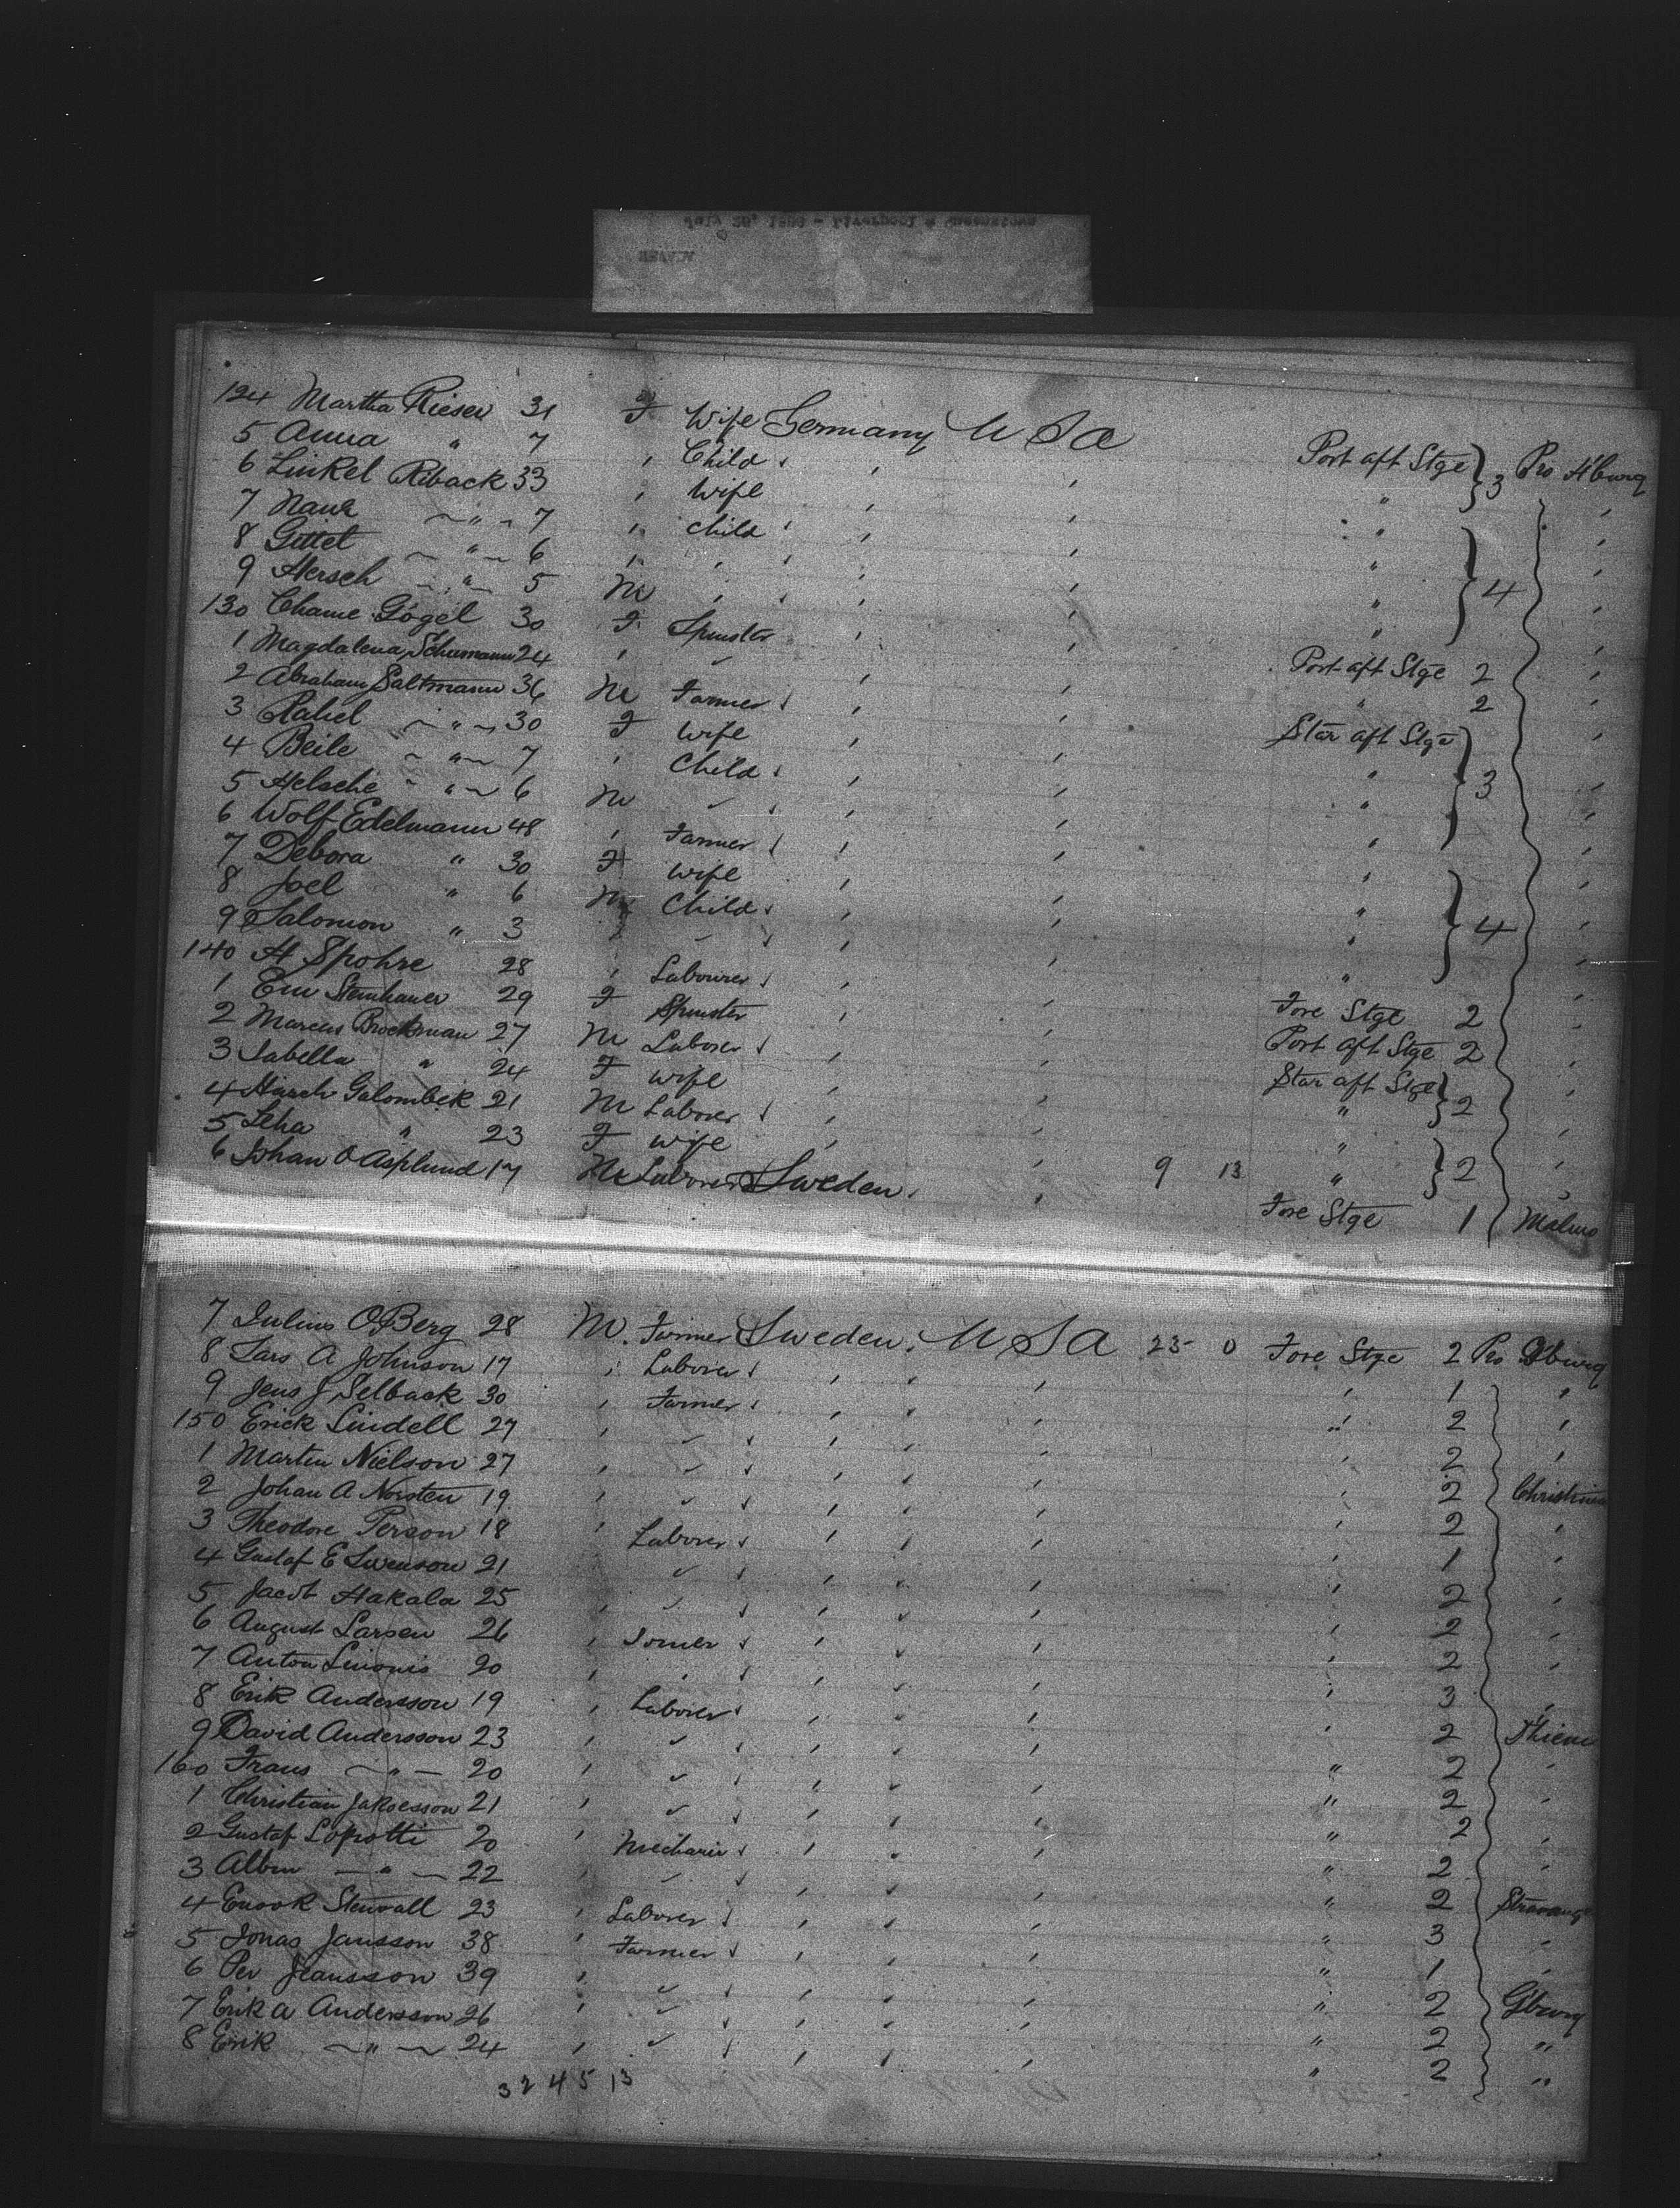 July 26, 1886 - Liverpool & Queenstown
124 Martha Rieser 31 F Wife Germany U S A Port aft Stge } 3 Pro H'burg
5 Anna " 7 " Child " " " " "
6 Linkel Riback 33 " Wife " " " "
7 Naue " 7 " Child " " " "
8 Gittel " 6 " " " " " " } 4 "
9 Hersch " 5 M " " " " " "
130 Chame Gogel 30 F Spinster " " Port aft Stge 2 "
1 Magdalena Schumann 24 " " " " " 2 "
2 Abraham Saltmann 36 M Farmer " " Star aft Stge } 3 "
3 Rahel " 30 F Wife " " " "
4 Beile " 7 " Child " " " "
5 Helsche " 6 M " " " " "
6 Wolf Edelmann 48 " Farmer " " " } 4 "
7 Debora " 30 F Wife " " " "
8 Joel " 6 M Child " " " "
9 Salomon " 3 " " " " " "
140 H Spohre 28 " Labourer " " Fore Stge 2 "
1 Em Steinhauer 29 F Spinster " " Port aft Stge 2 "
2 Marcus Brockman 27 M Laborer " " Star aft Stge } 2 "
3 Isabella " 24 F Wife " " " "
4 Hirsch Galombek 21 M Laborer " " " } 2 "
5 Leha " 23 F Wife " " 9 13 " "
6 Johan O Asplund 17 M Laborer Sweden " Fore Stge 1 Malmo
7 Julius O Berg 28 M. Farmer Sweden. U S A 23 0 Fore Stge 2 Pro G'burg
8 Lars A Johnson 17 " Laborer " " " 1 "
9 Jens J Selback 30 " Farmer " " " 2 "
150 Erick Lindell 27 " " " " " 2 "
1 Martin Nielson 27 " " " " " 2 Christiania
2 Johan A Norsten 19 " " " " " 2 "
3 Theodore Person 18 " Laborer " " " 1 "
4 Gustaf E Swenson 21 " " " " " 2 "
5 Jacob Hakala 25 " " " " " 2 "
6 August Larsen 26 " " " " 2 "
7 Anton 20 " " " " " 3 "
8 Erik Andersson 19 " Laborer " " " 2
9 David Andersson 23 " " " " " 2 "
160 Frans " 20 " " " " " 2 "
1 Christian Jakoesson 21 " " " " " 2 "
2 Gustaf Lopotti 20 " Mechanic " " " 2 "
3 Albin " 22 " " " " " 2
4 Enook Stenvall 23 " Laborer " " " 3 "
5 Jonas Jansson 38 " Farmer " " " 1 "
6 Per Jeansson 39 " " " " " 2 G'burg
7 Erik A Andersson 26 " " " " " 2 "
8 Erik " 24 " " " " " 2 "
32 4 5 13